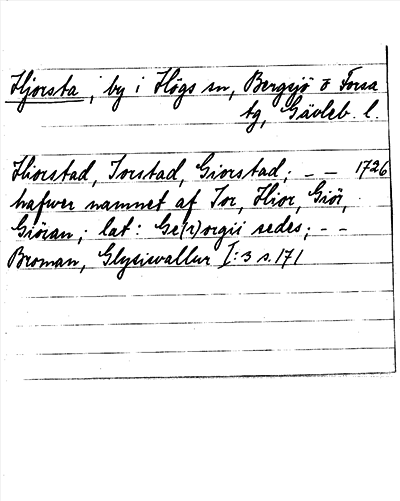 Hjorsta, by i Högs sn, Bergsjö o Forsa
tg, Gävleb. l.
Hiorstad, Iorstad, Giorstad; - - 1726
hafwer namnet af Ior, Hior, Giör,
Giöran; lat: Ge(r)orgii sedes; - -
Broman, Glysisvallur I:3 s. 171